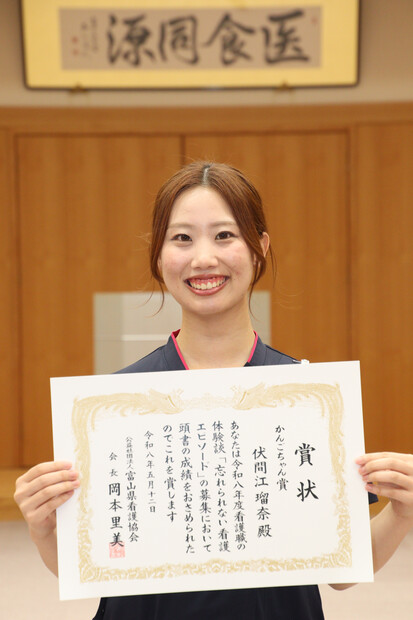 医食同源
賞状
かんごちゃん賞
伏間江瑠奈殿
あなたは令和八年度看護職の
体験談「忘れられない看護
エピソード」の募集において
頭書の成績をおさめられた
のでこれを賞します
令和八年五月十二日
公益社団法人富山県看護協会
会長 岡本里美